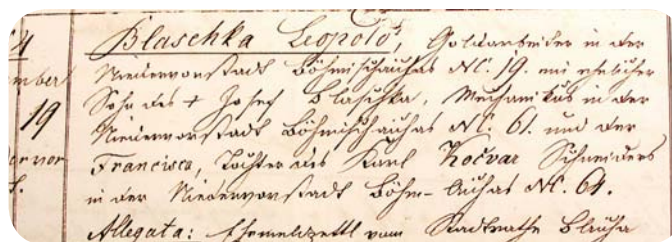 4 Blaschka Leopold, Goldarbeiter in der
ember Niedervorstadt Böhmischaichas NC. 19. ein ehelicher
19 Sohn des + Josef Blaschka, Mechanikus in der
Niedervorstadt Böhmischaichas NC. 61. und der
Francisca, Tochter des Karl Kočvar Schneiders
in der Niedervorstadt Böhm-Aichas NC. 64.
Allegata: Ehemeldzettl vom Stadtrathe